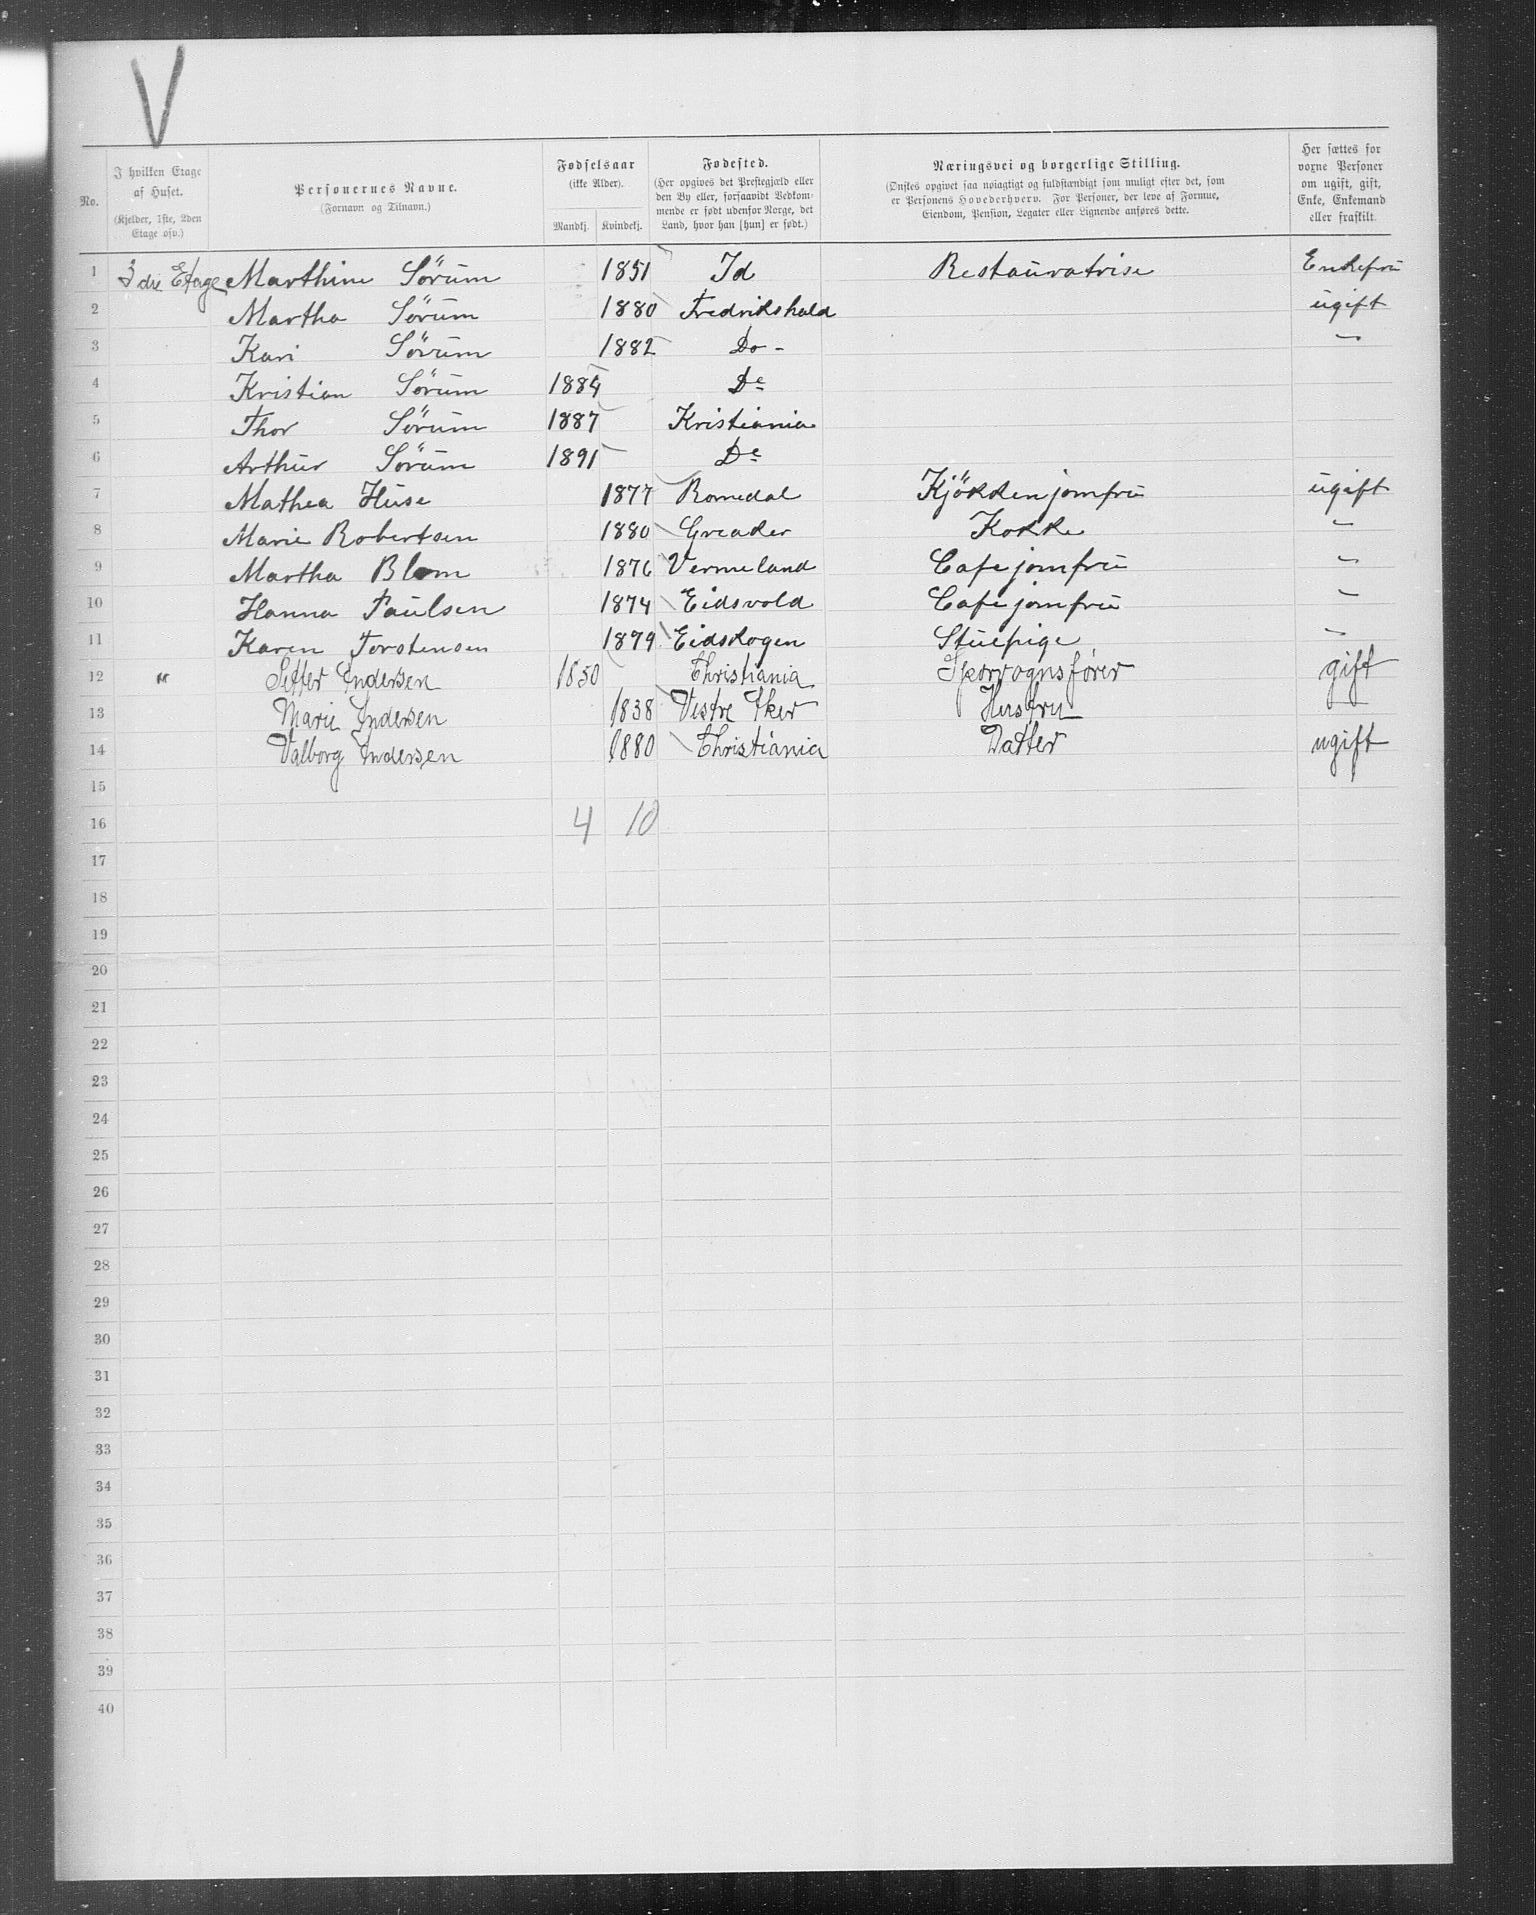 V
No.
I hvilken Etage af Huset.
(Kjelder, 1ste, 2den Etage osv.)
Personernes Navne.
(Fornavn og Tilnavn.)
Fødselsaar
(ikke Alder).
Mandkj. Kvindekj.
Fødested.
(Her opgives det Prestegjæld eller
den By eller, forsaavidt Vedkom-
mende er født udenfor Norge, det
Land, hvor han [hun] er født.)
Næringsvei og borgerlige Stilling.
(Ønskes opgivet saa nøiagtigt og fuldstændigt som muligt efter det, som
er Personens Hovederhverv. For Personer, der leve af Formue,
Eiendom, Pension, Legater eller Lignende anføres dette.
Her sættes for
voxne Personer
om ugift, gift,
Enke, Enkemand
eller fraskilt.
1 3die Etage Marthine Sørum 1851 Id Restauratrise Enkefru
2 Martha Sørum 1880 Fredrikshald ugift
3 Kari Sørum 1882 Do - "
4 Kristian Sørum 1884 Do
5 Thor Sørum 1887 Kristiania
6 Arthur Sørum 1891 Do
7 Mathea Huse 1877 Romedal Kjökkenjomfru ugift
8 Marie Robertsen 1880 Greaker Kokke "
9 Martha Blom 1876 Vermeland Cafejomfru "
10 Hanna Paulsen 1874 Eidsvold Cafejomfru "
11 Karen Torstensen 1879 Eidskogen Stuepige "
12 " Petter Andersen 1850 Christiania Sporvognsfører gift
13 Marie Andersen 1838 Vestre Aker Husfru —
14 Valborg Andersen 1880 Christiania Datter ugift
15
16 4 10
17
18
19
20
21
22
23
24
25
26
27
28
29
30
31
32
33
34
35
36
37
38
39
40